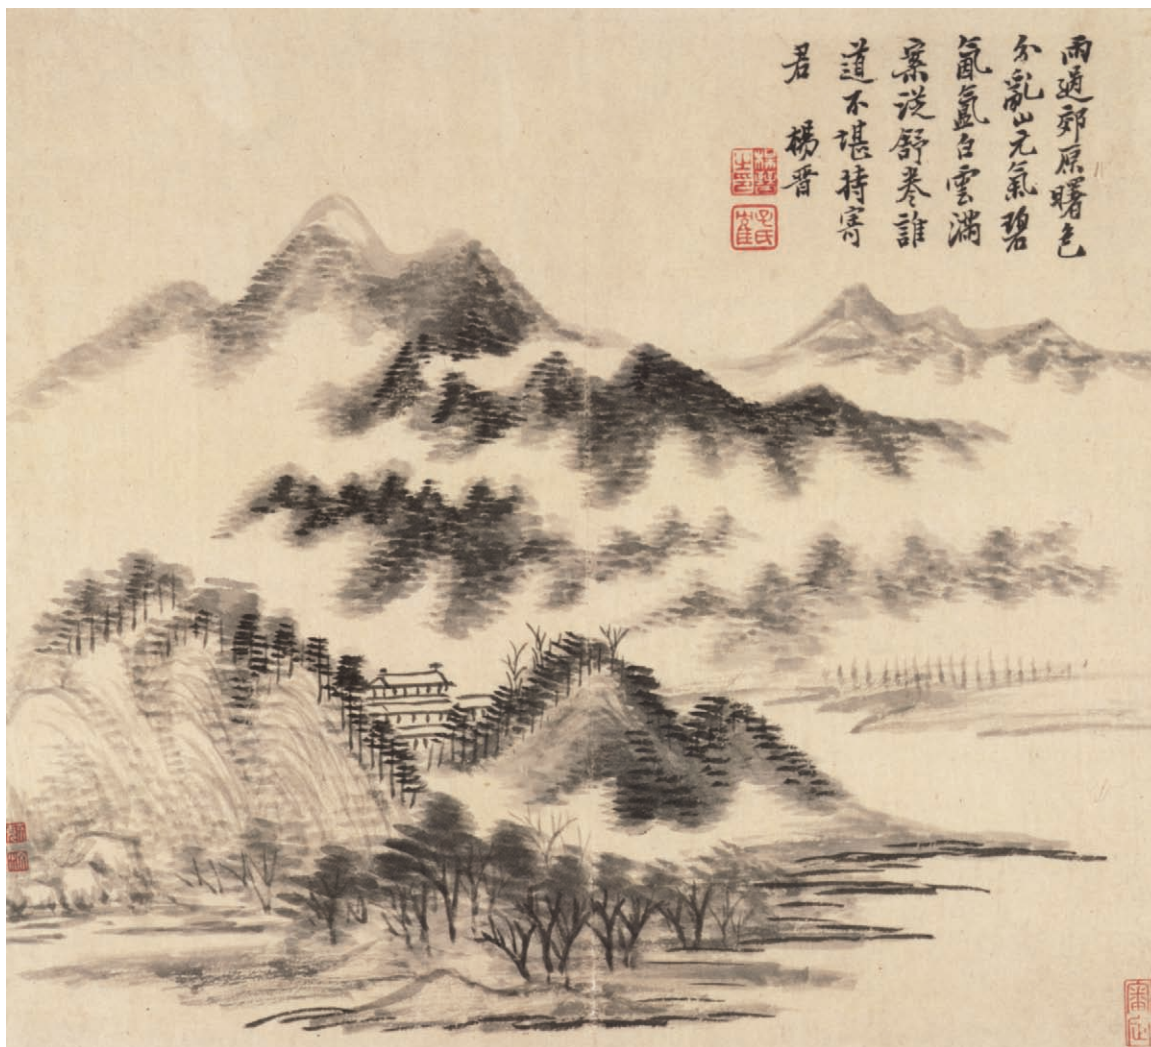 雨過郊原曙色
分亂山元氣碧
氤氳白雲滿
案從舒卷誰
道不堪持寄
君 楊晉